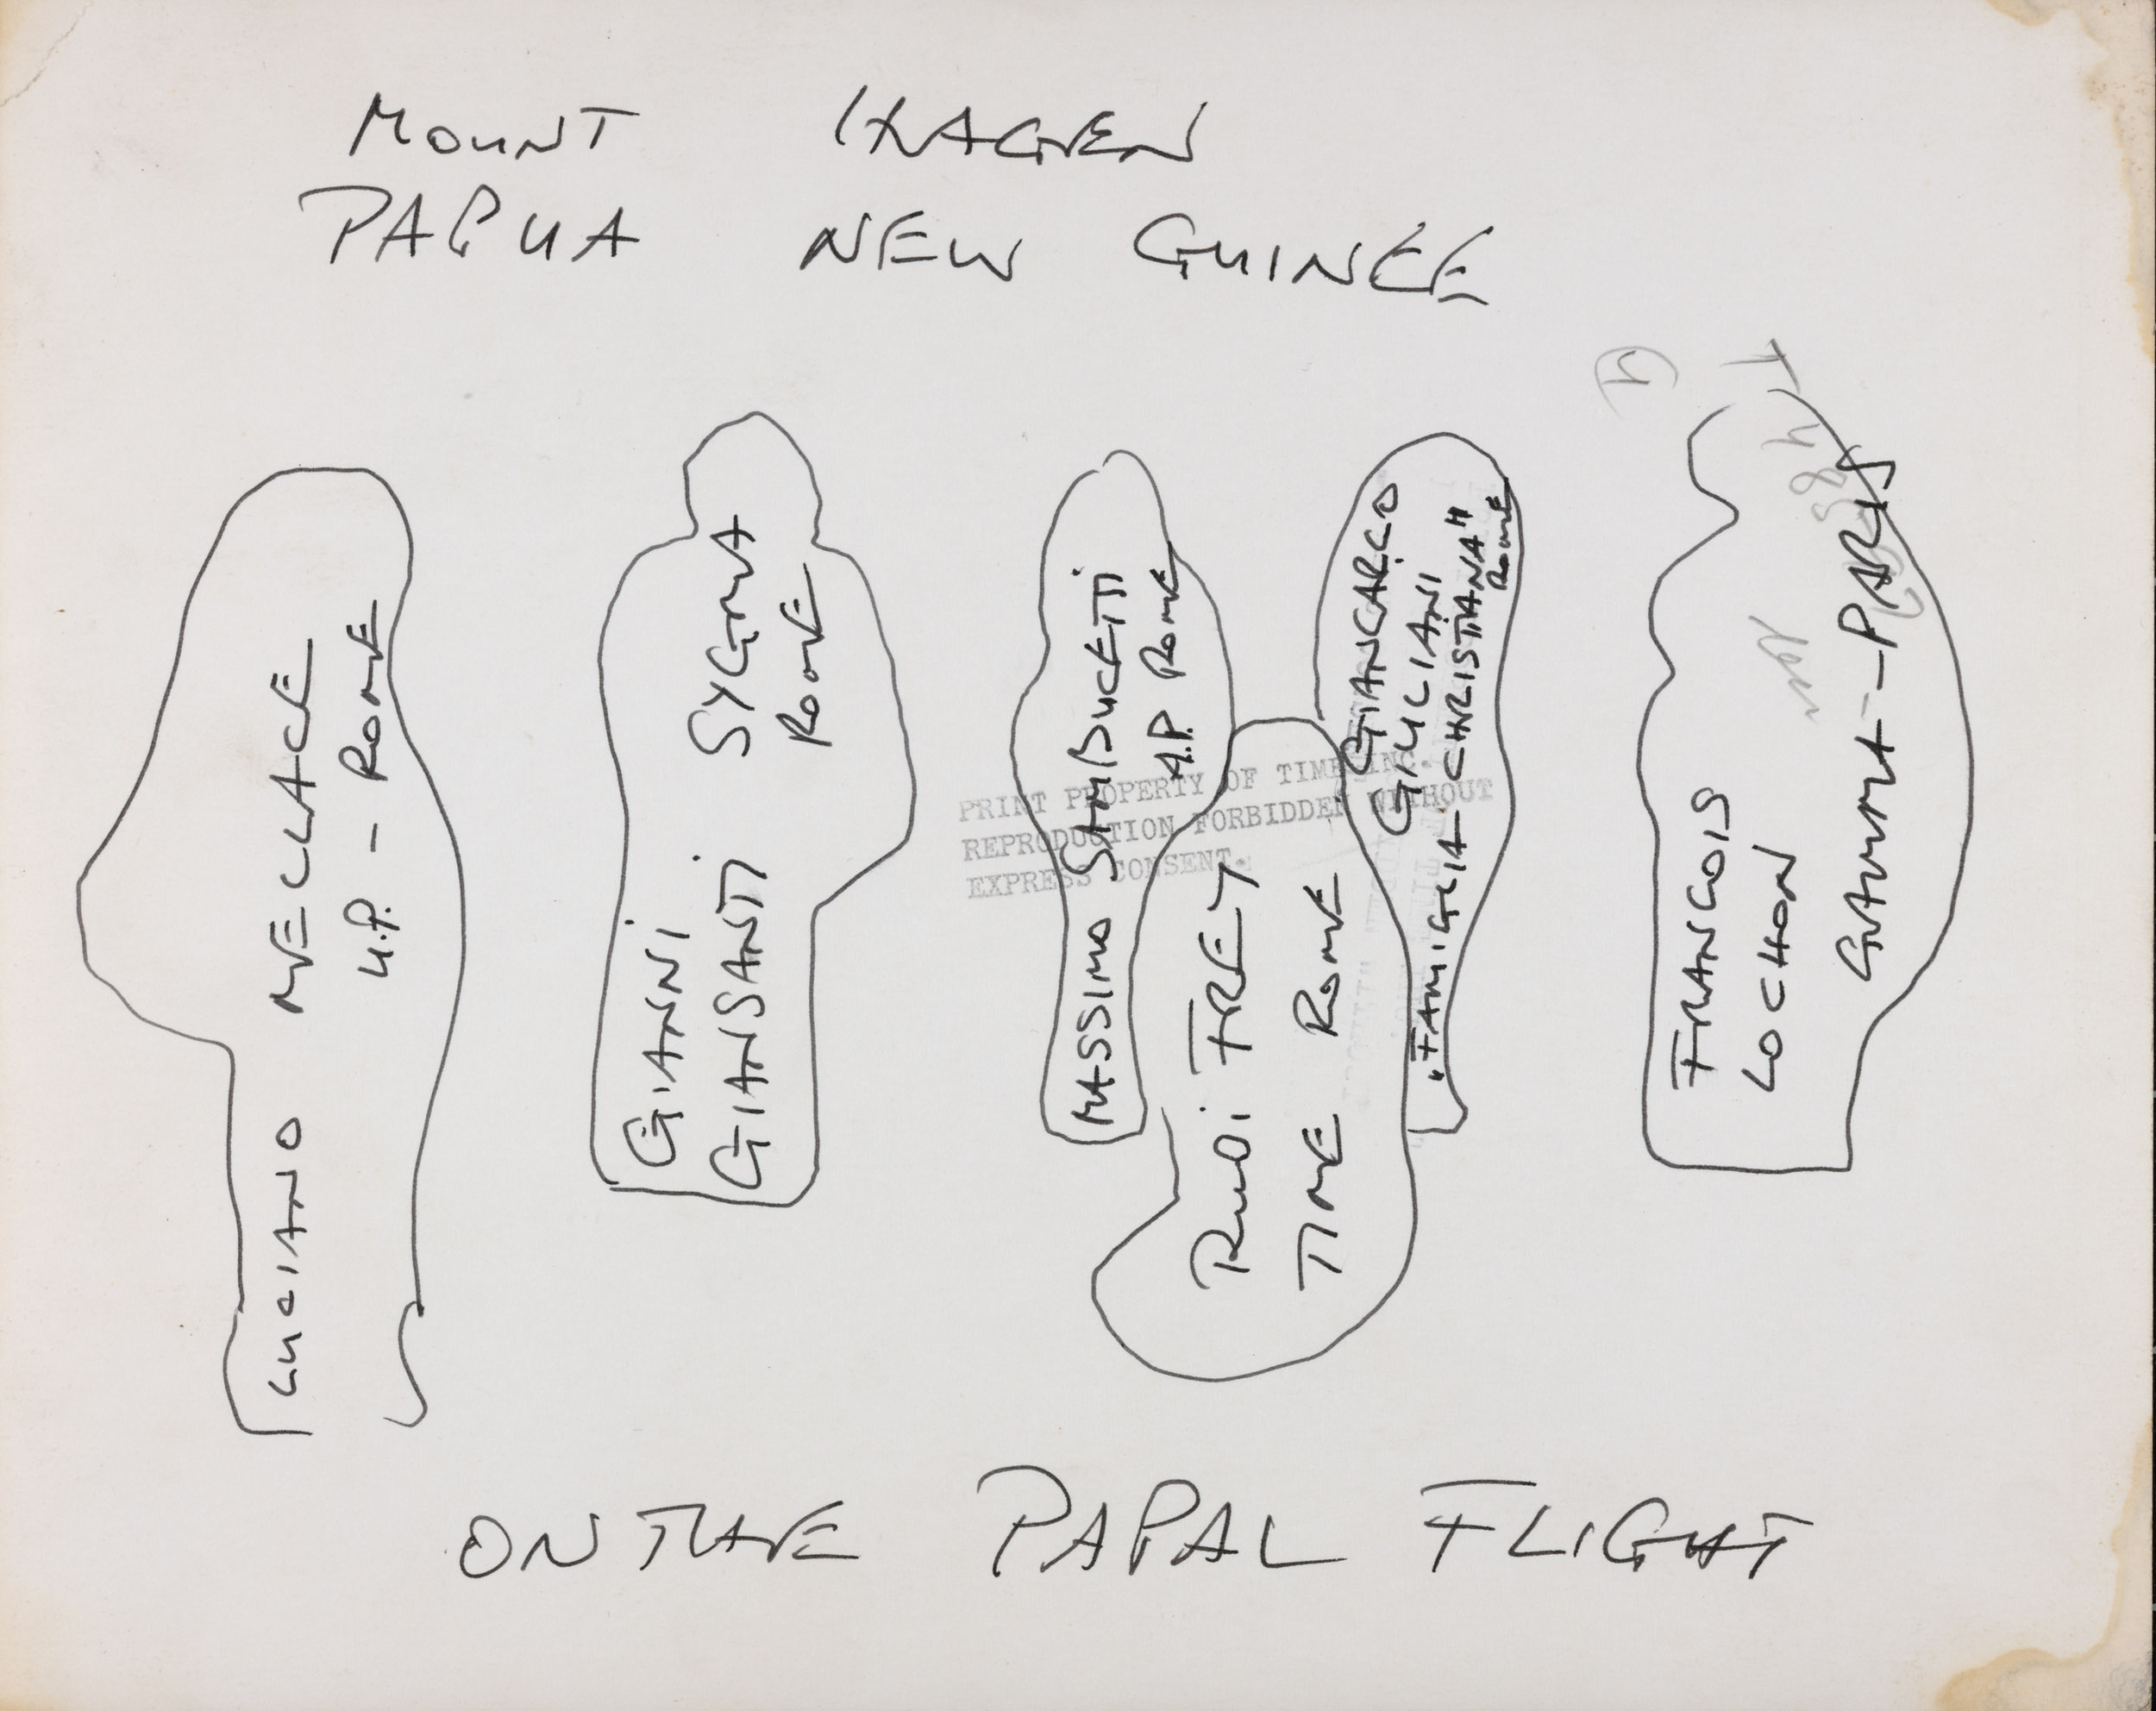 MOUNT HAGEN
PAPUA NEW GUINEE
LUCIANO MELLACE
U.P. - ROME
GIANNI
GIANSANTI SYGMA
ROME
MASSIMO SAMBUCETTI
A.P. ROME
RUDI FREY
TIME ROME
GIANCARLO
GIULIANI
"FAMIGLIA CHRISTIANA"
ROME
FRANCOIS
LOCHON
GAMMA - PARIS
PRINT PROPERTY OF TIME INC.
REPRODUCTION FORBIDDEN WITHOUT
EXPRESS CONSENT.
ON THE PAPAL FLIGHT